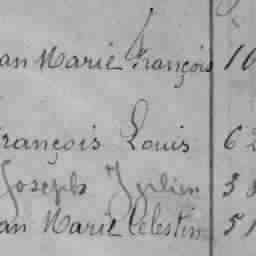 an Marie François 10
rançois Louis 62
Joseph Julien 33
an Marie Celestin 51